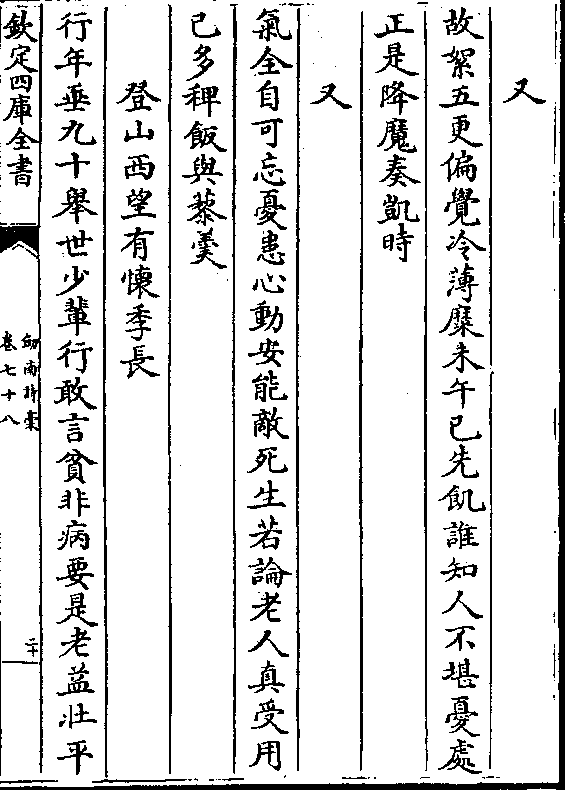 又
故絮五更偏覺冷薄糜未午已先飢誰知人不堪憂處
正是降魔奏凱時
又
氣全自可忘憂患心動安能敵死生若論老人真受用
已多稗飯與藜羹
登山西望有懐季長
行年垂九十舉世少輩行敢言貧非病要是老益壯平
欽定四庫全書
劒南詩稾
卷七十八
二十